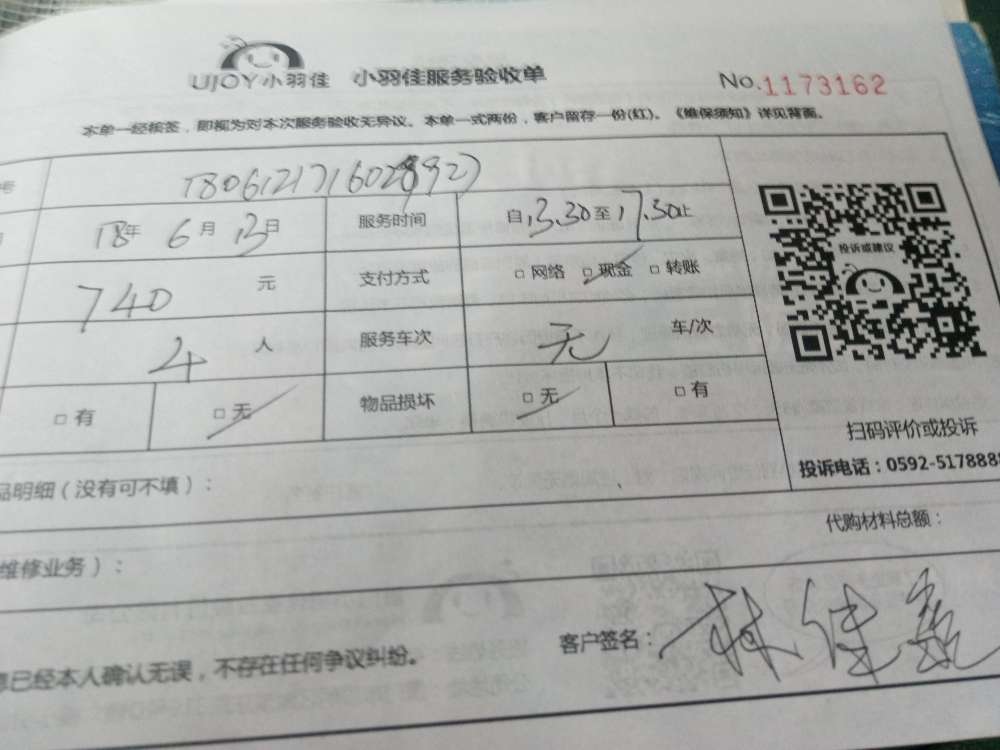 UJOY小羽佳 小羽佳服务验收单
No.1173162
本单一经核签，即视为对本次服务验收无异议。本单一式两份，客户留存一份(红)。《维保须知》详见背面。
号
18年 6月 13日 服务时间 自13.30至17.30止
投诉或建议
740 元 支付方式 □ 网络 □ 现金 □ 转账
4 人 服务车次 无 车/次
□ 有 □ 无 物品损坏 □ 无 □ 有
扫码评价或投诉
投诉电话：0592-5178888
品明细（没有可不填）：
代购材料总额：
维修业务）：
已经本人确认无误，不存在任何争议纠纷。
客户签名：林佳